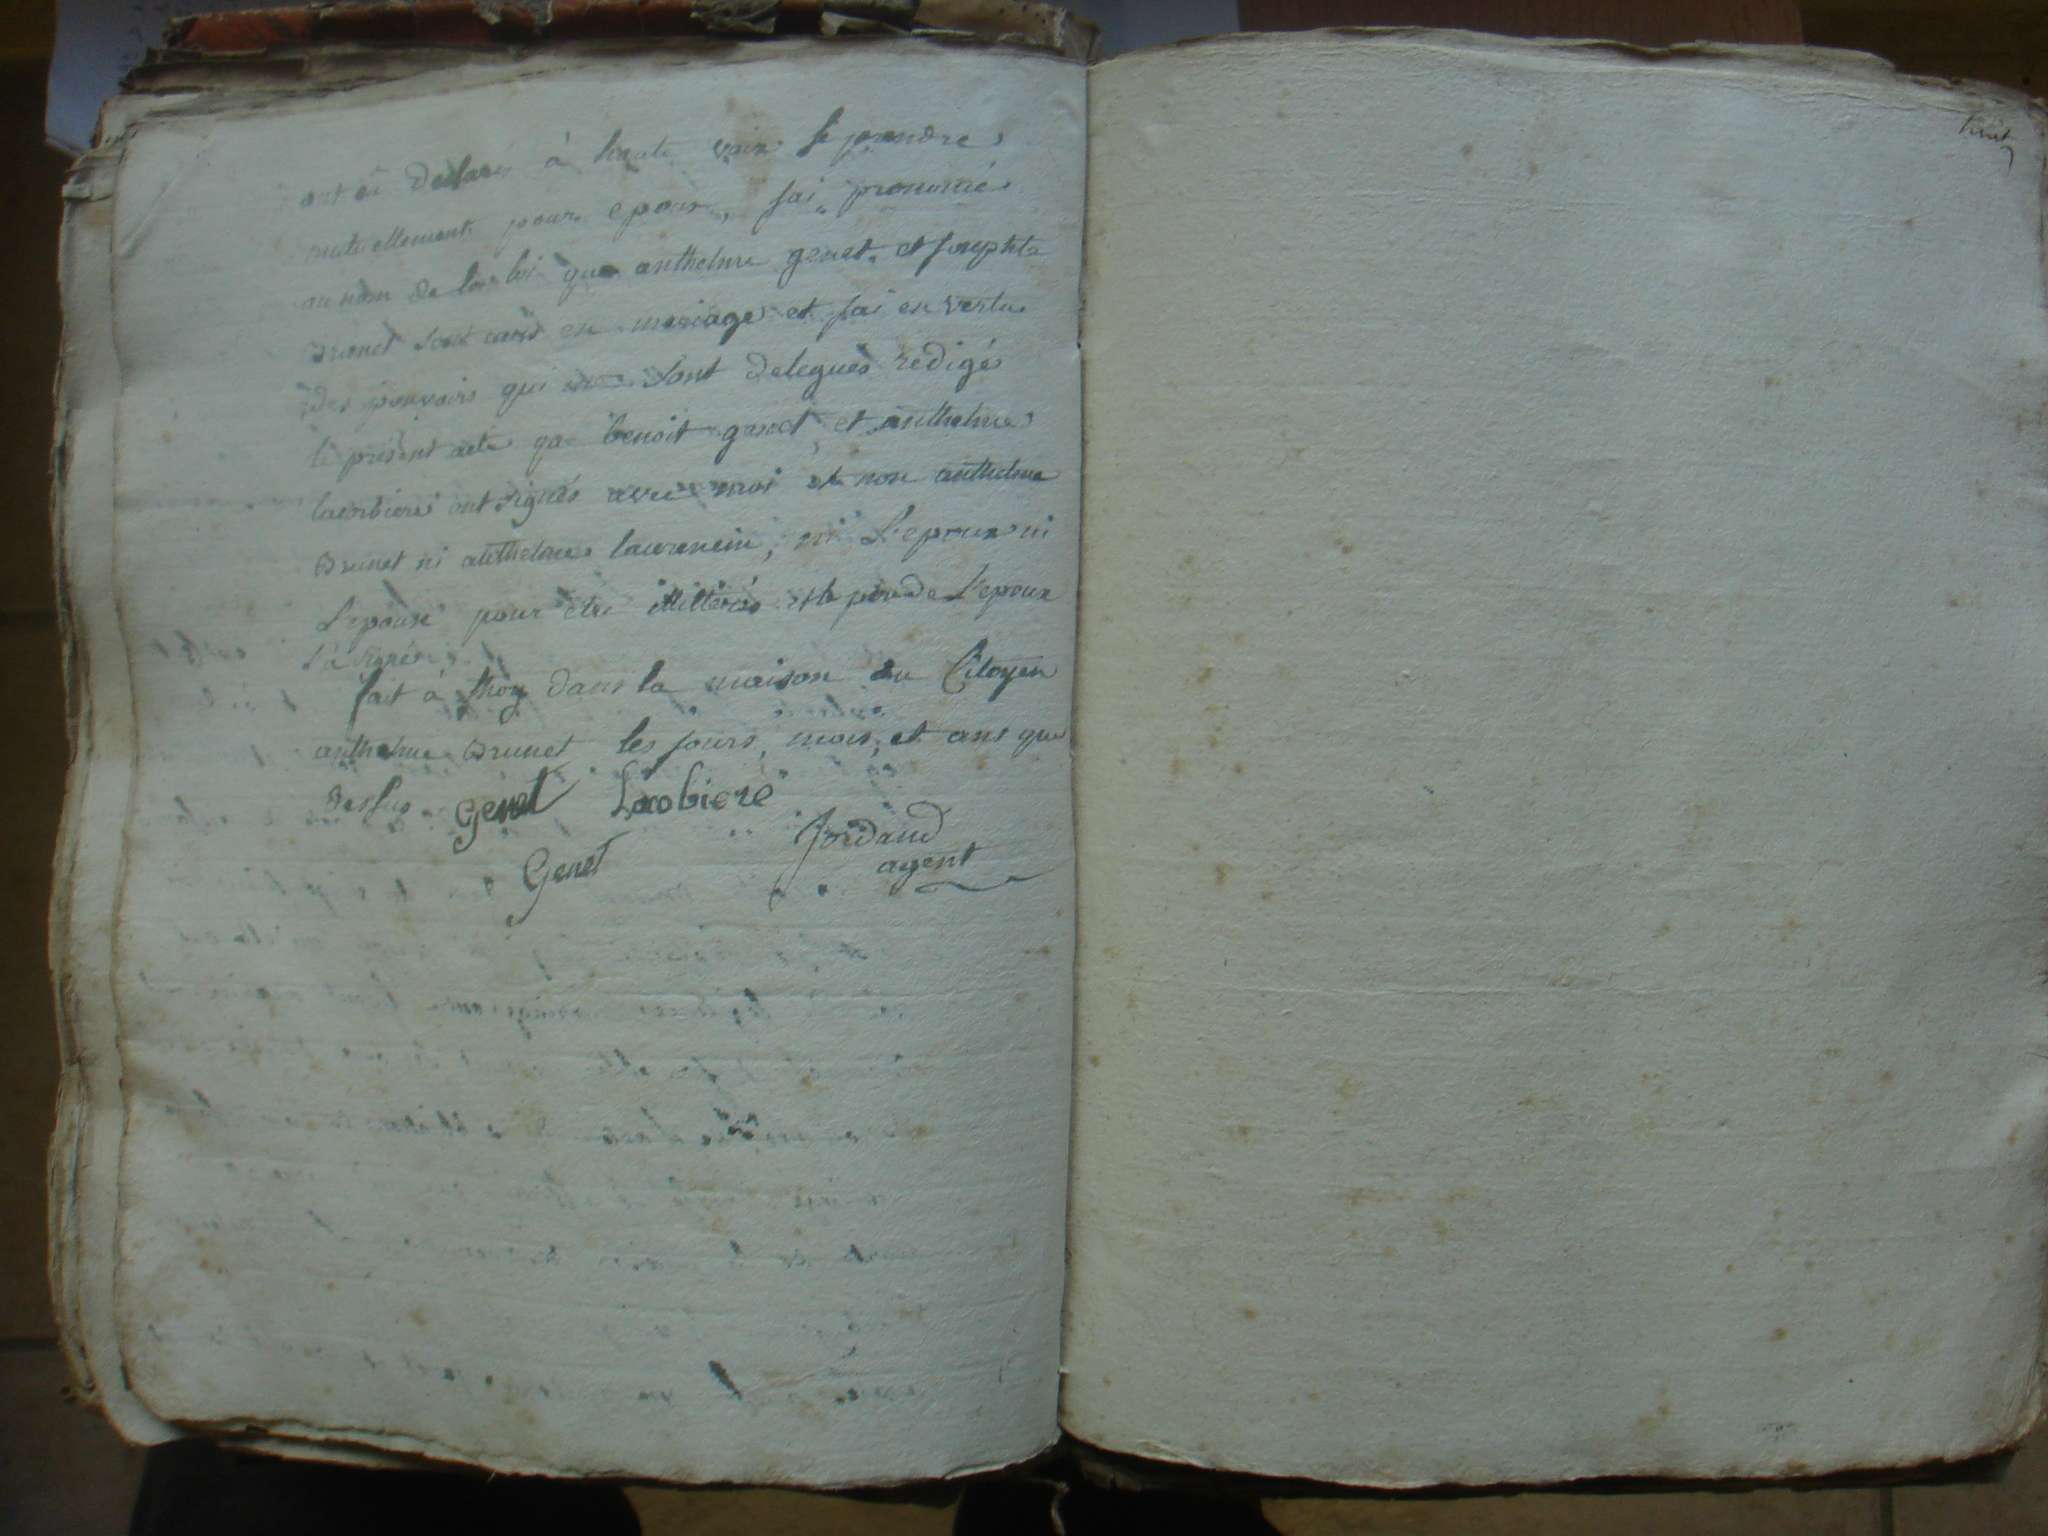 ont eû declarés à haute voix se prendre
mutuellement pour epoux, jai prononcé
au nom de la loi que anthelme genet et josephte
Brunet sont unis en mariage et jai en vertu
des pouvoirs qui me sont delegués redigé
le présent acte que benoit genet et anthelme
lacorbiere ont signés avec moi et non anthelme
Brunet ni anthelme laurencin, ni L'epoux ni
L'epouse pour être illitterés et le père de L'epoux
à signé
fait à thoy dans la maison du Citoyen
anthelme Brunet les jours, mois, et ans que
dessus Genet Lacobiere
Genet Jordand
agent
huit